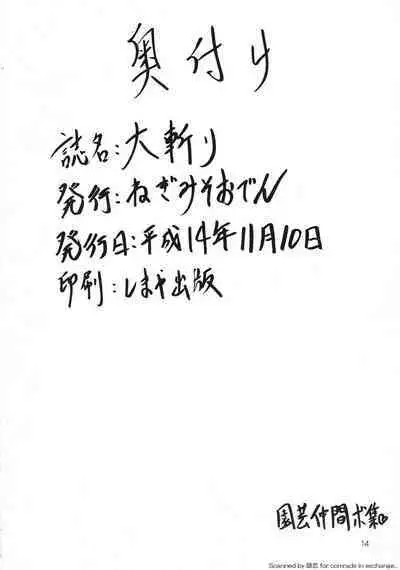 奥付け
誌名:大斬り
発行:ねぎみそおでん
発行日:平成14年11月10日
印刷:しまや出版
園芸仲間ボ集
14
Scanned by for comrade in exchange..